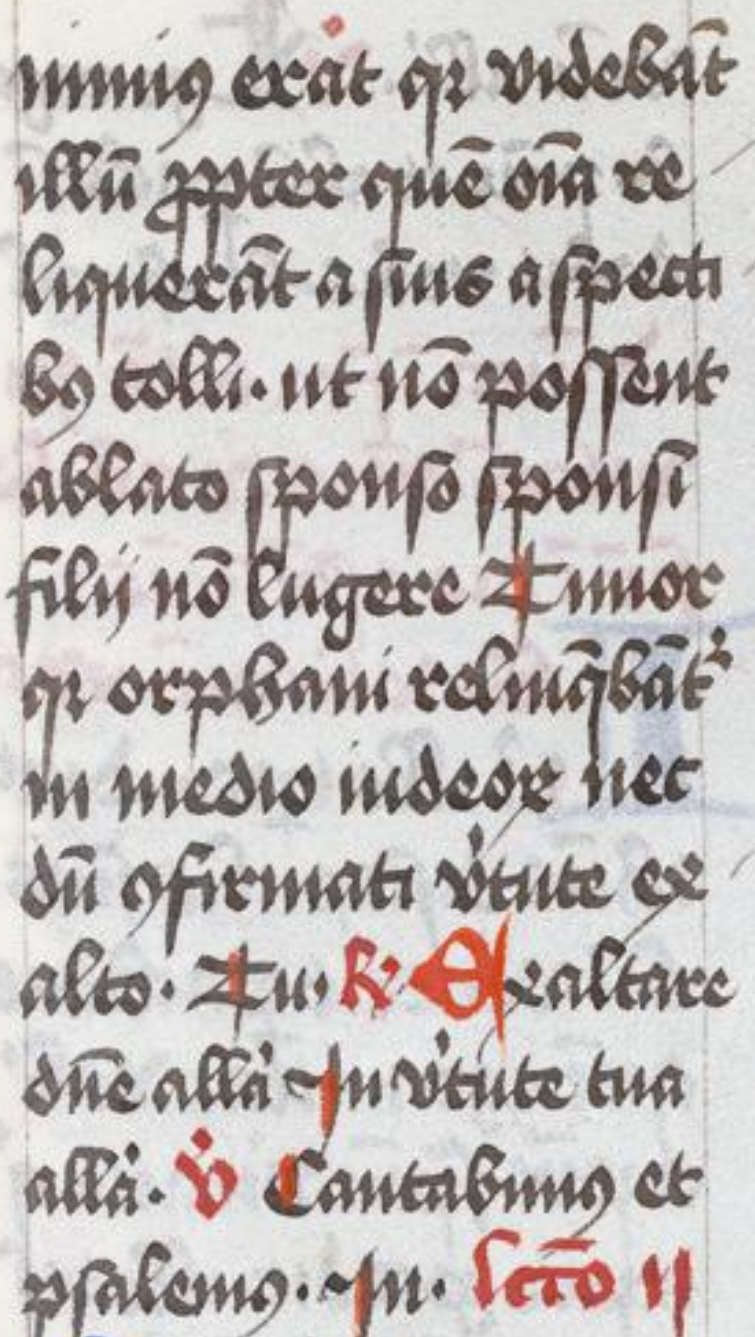 nimiꝰ erat qꝛ videbāt
illū ꝓpter quē oīa re
liquerāt a suis aspecti
bꝰ tolli. ut nō possent
ablato sponso sponsi
filij nō lugere Timor
qꝛ orphani relinq̄bāt᷑
in medio iudeoꝝ nec
dū ꝯfirmati v̓tute ex
alto. Tu. ℟ Exaltare
dn̄e alla̓ In v̓tute tua
alla̓. v̓ Cantabimꝰ et
psalemꝰ. In. lcc̄o II